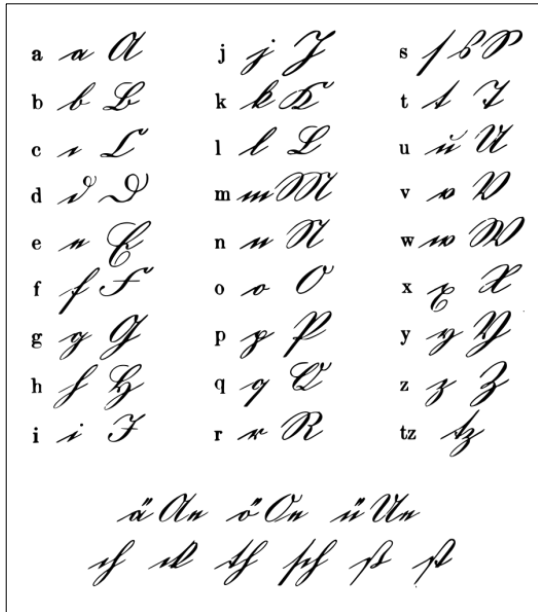 a a A
b b B
c c C
d d D
e e E
f f F
g g G
h h H
i i I
j j J
k k K
l l L
m m M
n n N
o o O
p p P
q q Q
r r R
s ſ s S
t t T
u u U
v v V
w w W
x x X
y y Y
z z Z
tz tz
ä Ae ö Oe ü Ue
ch ck th ſch ß ſt